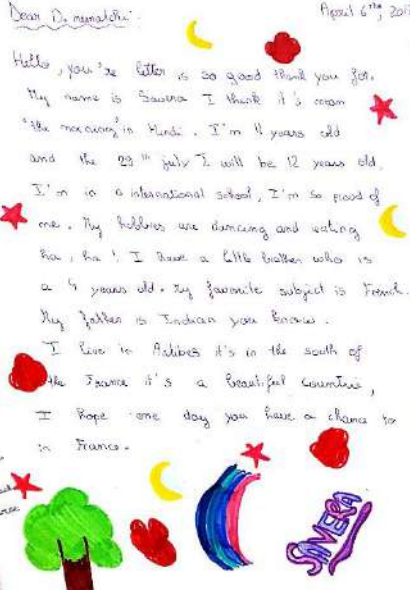 Dear D.
April 6th, 201
Hello, you're letter is so good thank you for.
My name is Savera I think it's mean
"the morning" in Hindi. I'm 11 years old
and the 29th july I will be 12 years old.
I'm in a international school, I'm so proud of
me. My hobbies are dancing and eating
ha, ha!. I have a little brother who is
a 4 years old. My favorite subject is French.
My father is Indian you know.
I live in Antibes it's in the south of
the France it's a beautiful countrie,
I hope one day you have a chance to
in France.
SAVERA